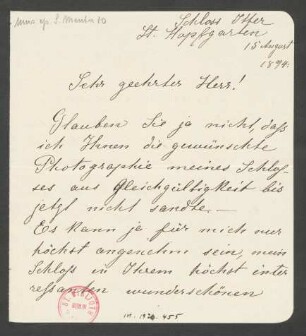 Schloss Itter
St. Hopfgarten
15 August
1894.
Sehr geehrter Herr!
Glauben Sie ja nicht, daß
ich Ihnen die gewünschte
Photographie meines Schlos-
ses aus Gleichgültigkeit bis
jetzt nicht sandte. –
Es kann ja für mich nur
höchst angenehm sein, mein
Schloß in Ihrem höchst inter
essanten wunderschönen